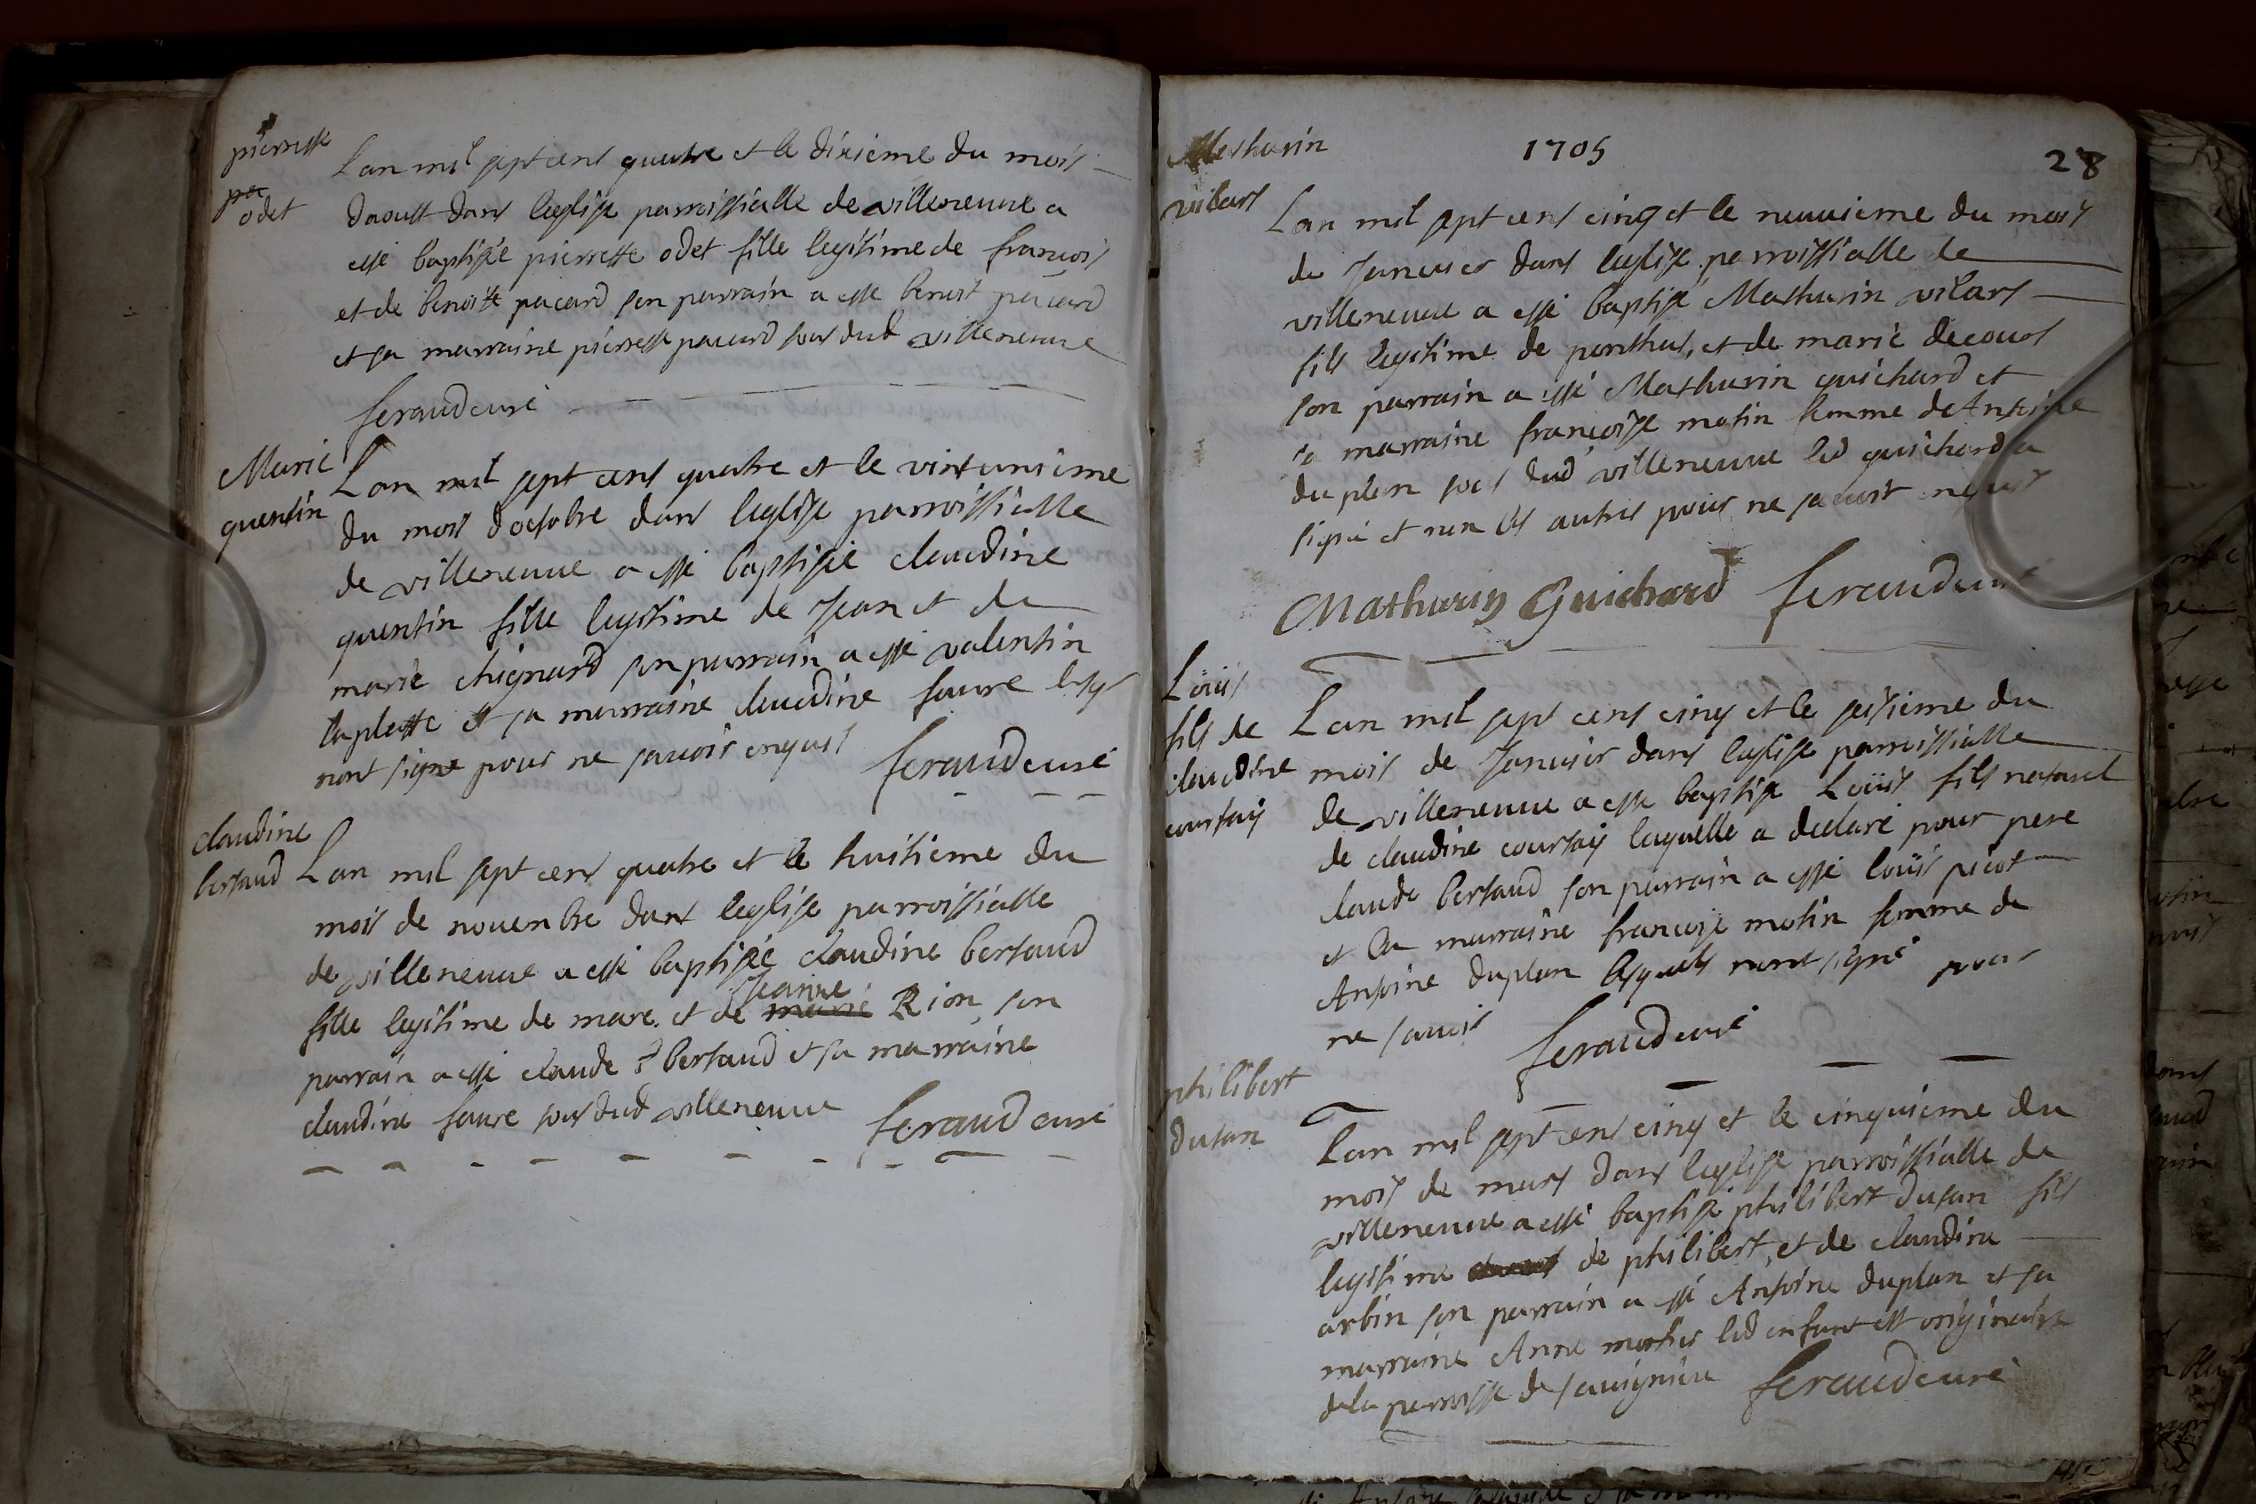 pierrette
pa
odet
Lan mil sept cens quatre et le dixieme du mois
daoust dans leglise parroissialle de villeneuve a
esté baptisée pierrette odet fille legitime de francois
et de benoite pacard son parrain a esté benoit pacard
et sa marraine pierrette pacard tous dud villeneuve
feraud curé
Marie
quentin
Lan mil sept cens quatre et le vintunieme
du mois doctobre dans leglise parroissialle
de villeneuve a esté baptisée claudine
quentin fille legitime de Jean et de
marie chignard son parrain a esté valentin
laplatte et sa marraine claudine faure lesqs
nont signe pour ne savoir enquis
feraud curé
claudine
bertaud
Lan mil sept cens quatre et le huitieme du
mois de novembre dans leglise parroissialle
de villeneuve a esté baptisée claudine bertaud
Jeanne
fille legitime de marc et de marie Rion son
parrain a esté claude bertaud et sa marraine
claudine faure tous dud villeneuve
feraud curé
1705
28
Mathurin
vilars
Lan mil sept cens cinq et le neuvieme du mois
de Janvier dans leglise parroissialle de
villeneuve a esté baptisé Mathurin vilars
fils legitime de ponthus, et de marie decour
son parrain a esté Mathurin guichard et
sa marraine françoise matin femme de Antoine
du plan tous dud villeneuve led guichard a
signé et non les autres pour ne savoir
Mathurin Guichard feraud curé
Loüis
fils de
claudine
courtay
Lan mil sept cens cinq et le seisieme du
mois de Janvier dans leglise parroissialle
de villeneuve a esté baptisé Loüis fils naturel
de claudine courtay laquelle a declaré pour pere
claude bertaud son parrain a esté loüis picot
et sa marraine francoise matin femme de
Antoine duplan lesquels nont signé pour
ne savoir
feraud curé
philibert
dutan
Lan mil sept cens cinq et le cinquieme du
mois de mars dans leglise parroissialle de
villeneuve a esté baptisé philibert dutan fils
legitime de philibert, et de claudine
arbin son parrain a esté Antoine duplan et sa
marraine Anne mortier led enfant est originaire
de la parroisse de savignieu
feraud curé